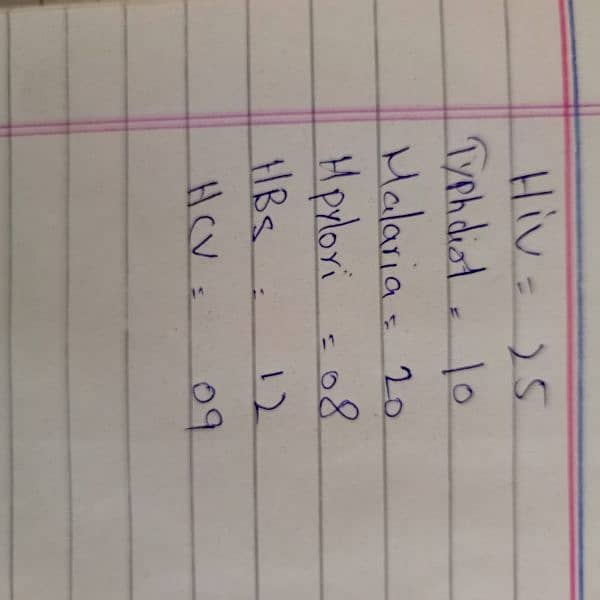 Hiv = 25
Typhdiot = 10
Malaria = 20
H pylori = 08
HBs = 12
HCV = 09